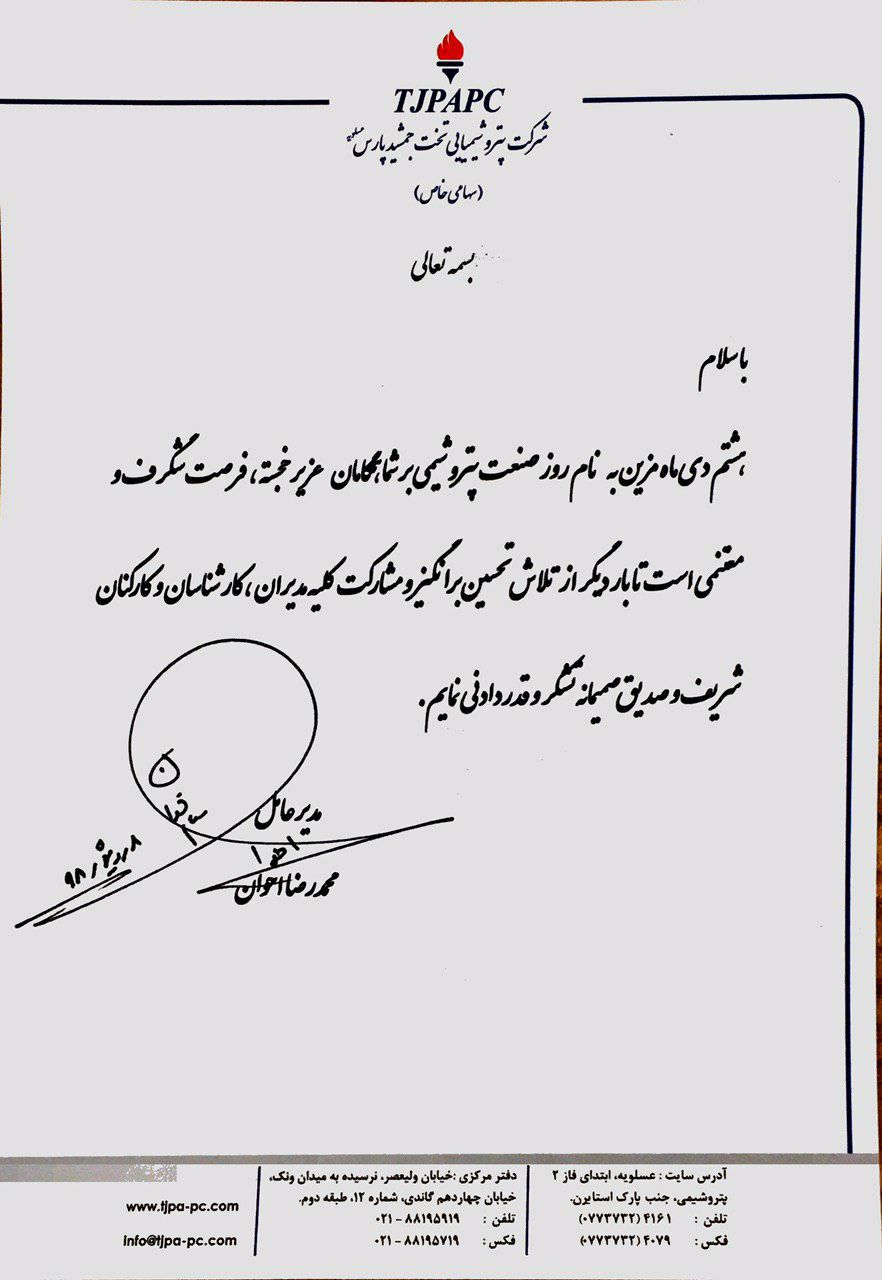 TJPAPC
شرکت پتروشیمیایی تخت جمشید پارس عسلویه
(سهامی خاص)
بسمه تعالی
با سلام
هشتم دی ماه مزین به نام روز صنعت پتروشیمی بر شما همگامان عزیز خجسته، فرصت شگرف و
مغتنمی است تا بار دیگر از تلاش تحسین برانگیز و مشارکت کلیه مدیران، کارشناسان و کارکنان
شریف و صدیق صمیمانه تشکر و قدردانی نمایم.
مدیرعامل
محمدرضا اخوان
۸ دی ۹۸
آدرس سایت : عسلویه، ابتدای فاز ۲
پتروشیمی، جنب پارک استایرن.
تلفن : ۴۱۶۱ (۰۷۷۳۷۳۲)
فکس : ۴۰۷۹ (۰۷۷۳۷۳۲)
دفتر مرکزی :خیابان ولیعصر، نرسیده به میدان ونک،
خیابان چهاردهم گاندی، شماره ۱۲، طبقه دوم.
تلفن : ۸۸۱۹۵۹۱۹ – ۰۲۱
فکس : ۸۸۱۹۵۷۱۹ – ۰۲۱
www.tjpa-pc.com
info@tjpa-pc.com